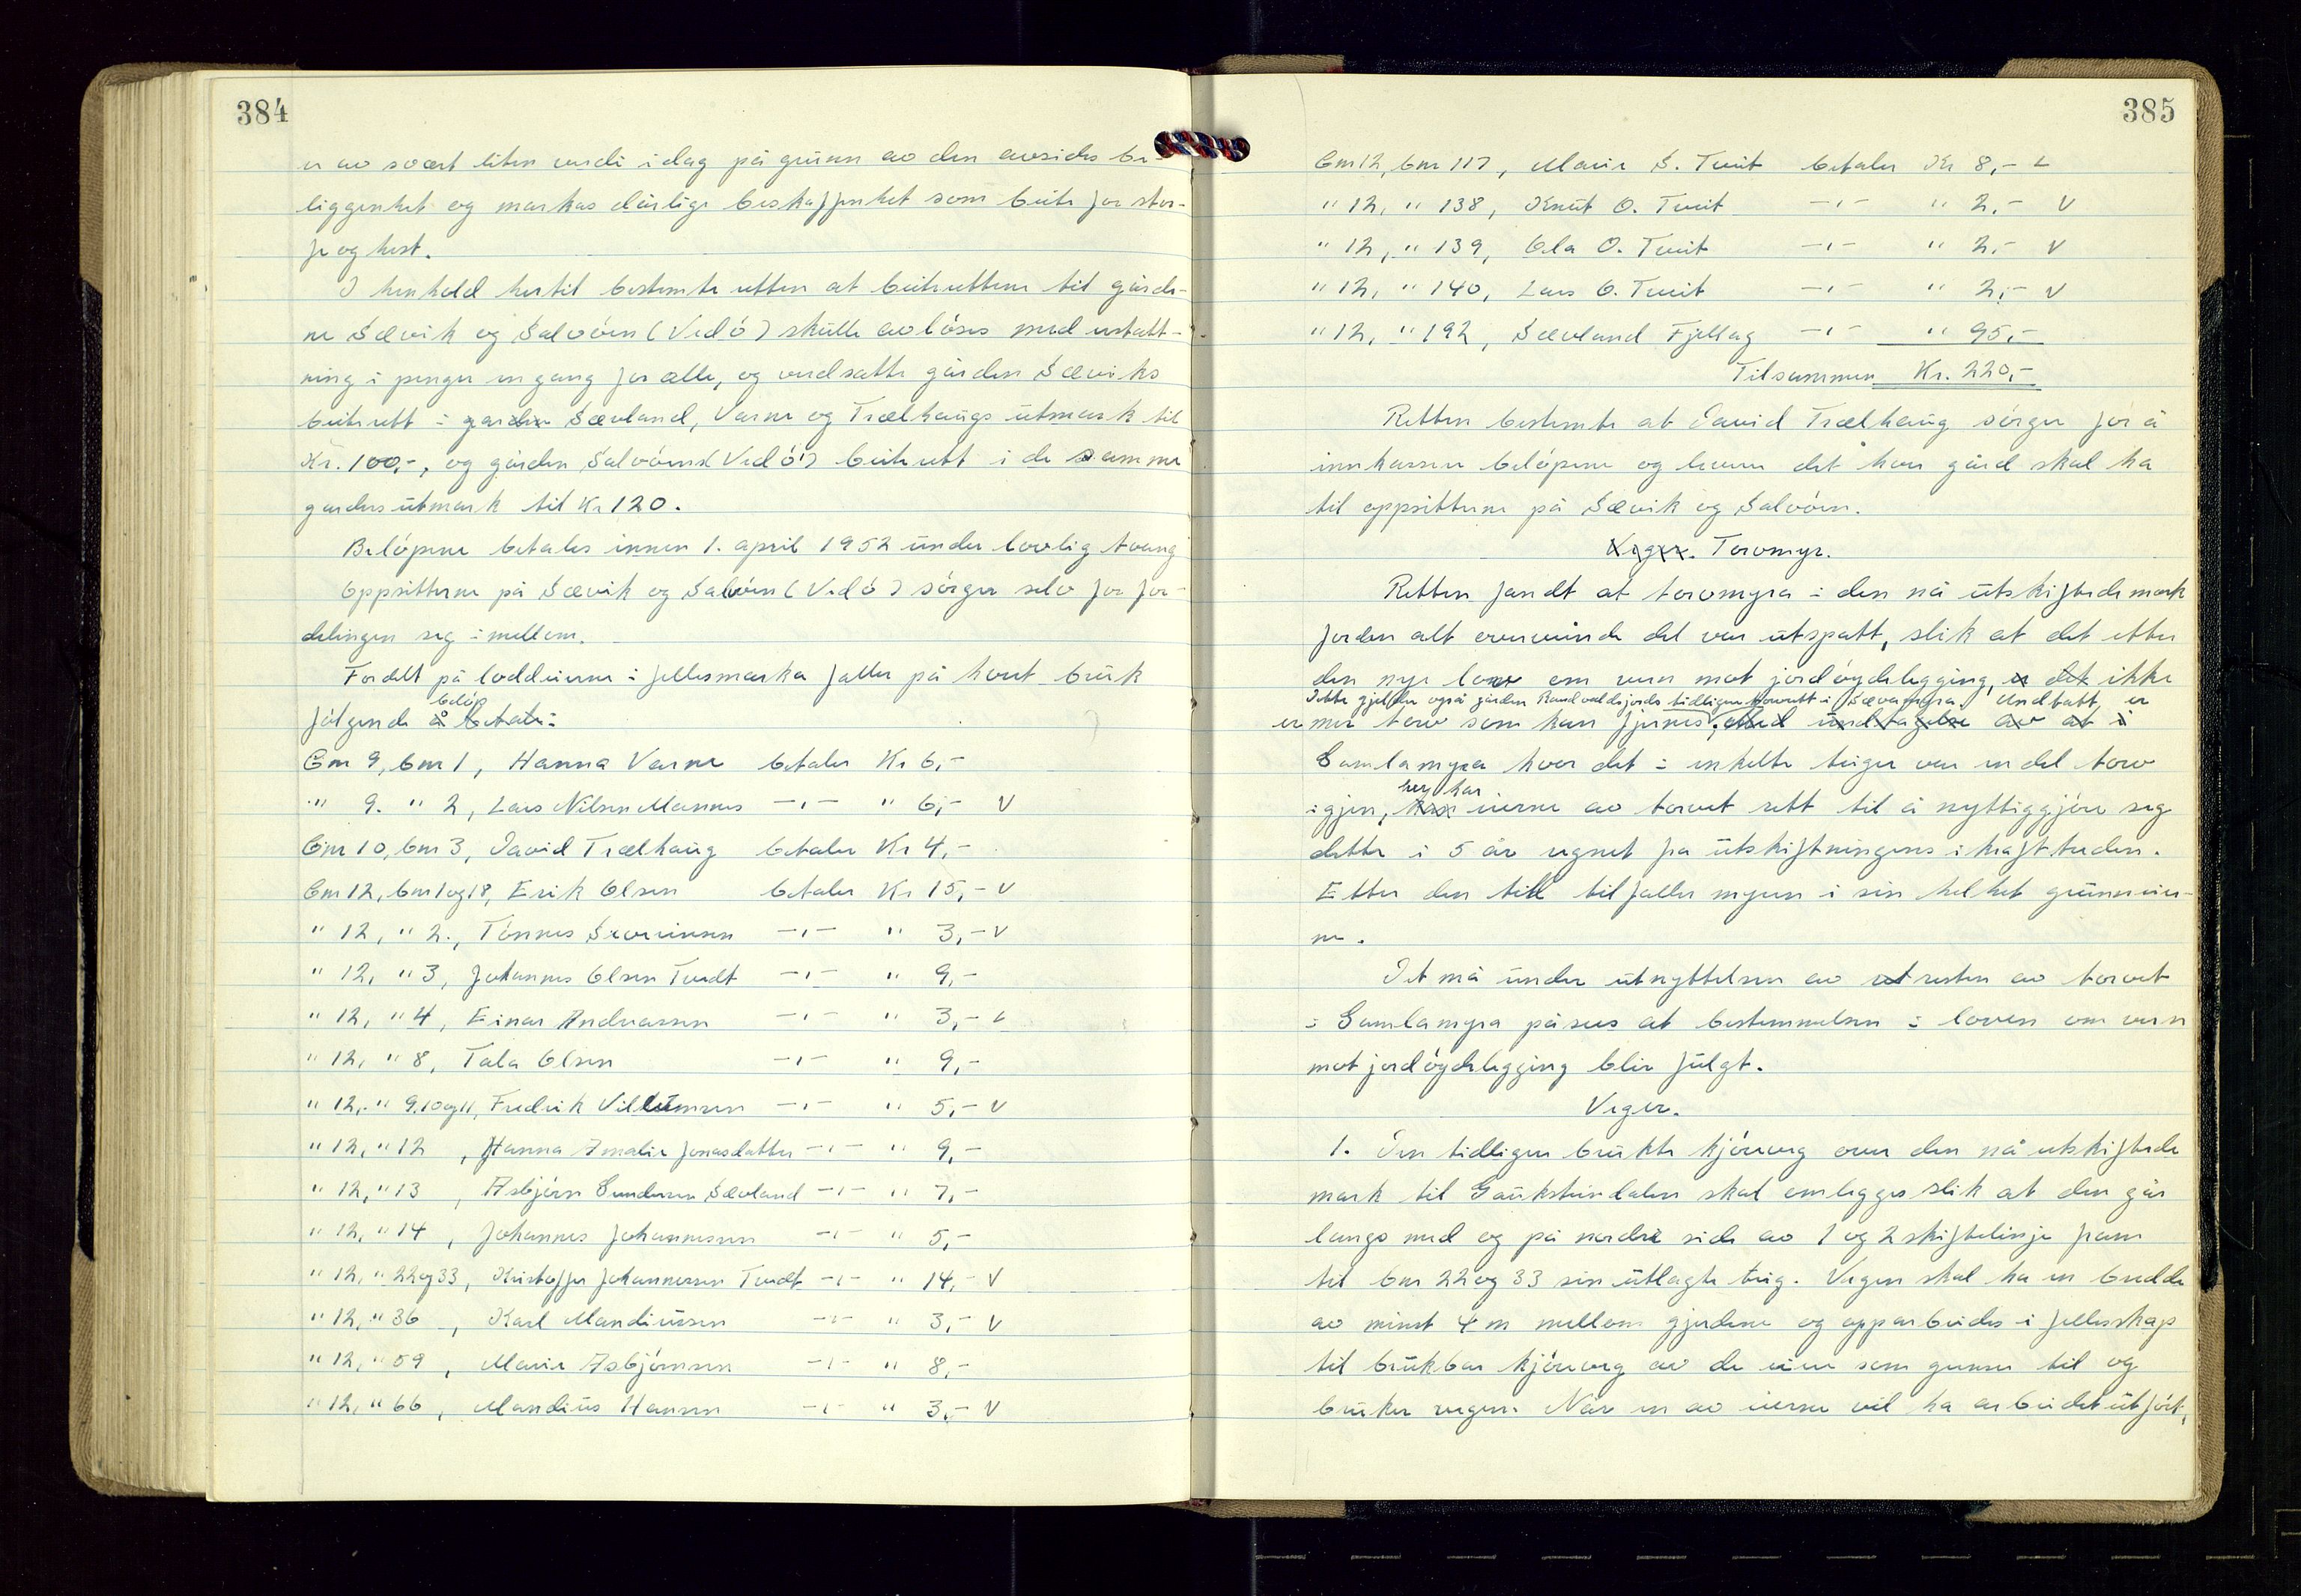 384
er av svært liten verdi i dag på grunn av den avsides be-
liggenhet og markas dårlige beskaffenhet som beite for stor-
fe og hest.
I henhold hertil bestemte retten at beiterettene til gårde-
ne Sævik og Salvøen (Vedø) skulle avløses med erstatt-
ning i penger en gang for alle, og verdsatte gården Sæviks
beiterett i garden Sævland, Varne og Trælhaugs utmark til
Kr. 100,-, og gården Salvøens (Vedø's) beiterett i de samme
garders utmark til Kr 120.
Beløpene betales innen 1. april 1952 under lovlig tvang
Oppsitterne på Sævik og Salvøen (Vedø) sørger selv for for-
delingen seg i mellem.
Fordelt på loddeierne i fellesmarka faller på hvert bruk
beløp
følgende å betale:
Gnr 9, bnr 1, Hanna Varne betaler Kr 6,-
" 9. " 2, Lars Nilsen Mannes -"- " 6,- V
Gnr 10, bnr 3, David Trælhaug betaler Kr 4,-
Gnr 12, bnr 1 og 18, Erik Olsen betaler Kr 15,- V
" 12, " 2., Tønnes Severinsen -"- " 3,- V
" 12, " 3, Johannes Olsen Tvedt -"- " 9,-
" 12, " 4, Einar Andreassen -"- " 3,- V
" 12, " 8, Tala Olsen -"- " 9,-
" 12, " 9.10 og 11, Fredrik Villumsen -"- " 5,- V
" 12, " 12, Hanna Amalie Jonasdatter -"- " 9,-
" 12, " 13, Asbjørn Gundersen Sævland -"- " 7,-
" 12, " 14, Johannes Johannesen -"- " 5,-
" 12, " 22 og 33, Kristoffer Johannessen Tvedt -"- " 14,- V
" 12, " 36, Karl Mandiussen -"- " 3,- V
" 12, " 59, Marie Asbjørnsen -"- " 8,-
" 12, " 66, Mandius Hansen -"- " 3,- V
385
Gnr 12, bnr 117, Marie S. Tveit betaler Kr 8,- V
" 12, " 138, Knut O. Tveit -"- " 2,- V
" 12, " 139, Ola O. Tveit -"- " 2,- V
" 12, " 140, Lars O. Tveit -"- " 2,- V
" 12, " 192, Sævland Fjellag -"- " 95,-
Tilsammen Kr. 220,-
Retten bestemte at David Trælhaug sørger for å
innkassere beløpene og levere det hver gård skal ha
til oppsitterne på Sævik og Salvøen.
Veger. Torvmyr.
Retten fandt at torvmyra i den nå utskiftede mark
forden alt overveiende del var utspatt, slik at det etter
den nye lov om vern mot jordøydelegging, er det ikke
Dette gjelder også gården Randvoldsjords tidligere torvrett i Sævamyra. Undtatt, er
er mer torv som kan fjernes, med undtagelse av at i
Gamlamyra hvor det i enkelte teiger var en del torv
her har
igjen, har eierne av torvet rett til å nyttiggjøre seg
dette i 5 år regnet fra utskiftningens ikrafttreden.
Etter den tid tilfaller myren i sin helhet grunneier-
ne.
Det må under utnyttelsen av ret resten av torvet
i Gamlamyra påsees at bestemmelsen i loven om vern
mot jordøydelegging blir fulgt.
Veger.
1. Den tidligere brukte kjøreveg over den nå utskiftede
mark til Gaukstindalen skal omlegges slik at den går
langs med og på nordre side av 1 og 2 skiftelinje fram
til bnr 22 og 33 sin utlagte teig. Vegen skal ha en bredde
av minst 4 m mellom gjerdene og opparbeides i fellesskap
til brukbar kjøreveg av de eiere som grenser til og
bruker vegen. Når en av eierne vil ha arbeidet utført,